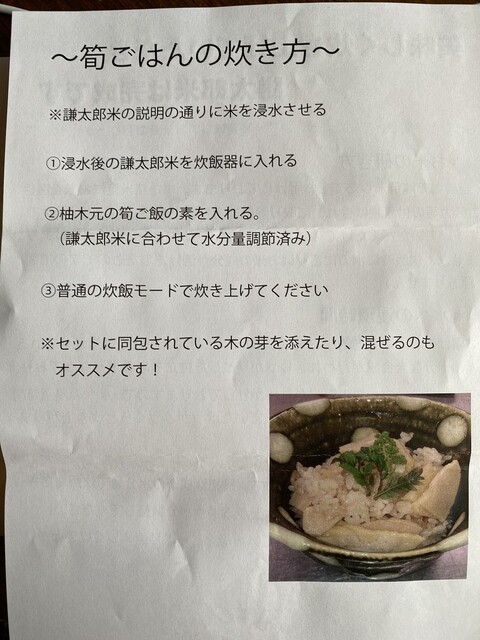 ～筍ごはんの炊き方～
※謙太郎米の説明の通りに米を浸水させる
①浸水後の謙太郎米を炊飯器に入れる
②柚木元の筍ご飯の素を入れる。
（謙太郎米に合わせて水分量調節済み）
③普通の炊飯モードで炊き上げてください
※セットに同包されている木の芽を添えたり、混ぜるのも
オススメです！